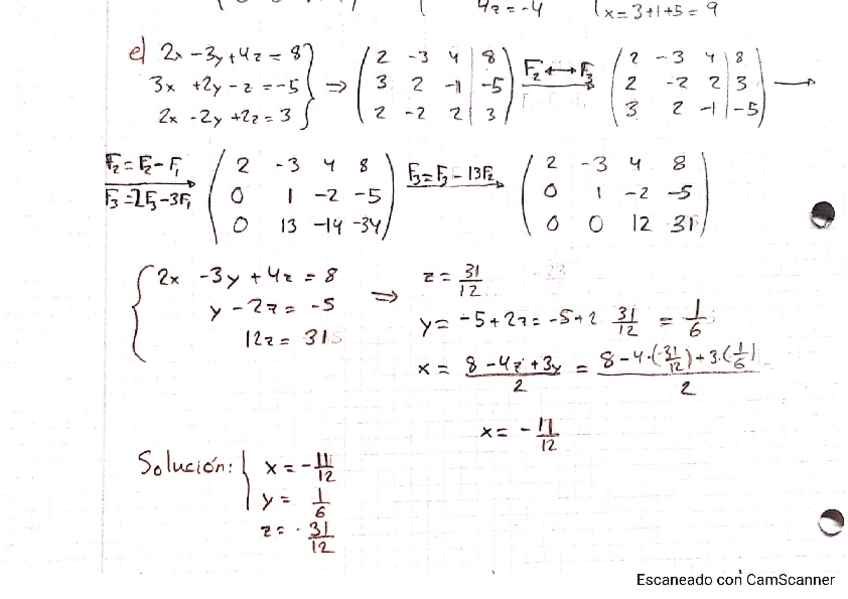 4z = -4
x = 3+1+5 = 9
e) 2x -3y +4z = 8
3x +2y -z = -5
2x -2y +2z = 3
⇒ ( 2 -3 4 | 8
3 2 -1 | -5
2 -2 2 | 3 )
F₂ ↔ F₃
( 2 -3 4 | 8
2 -2 2 | 3
3 2 -1 | -5 ) →
F₂ = F₂ - F₁
F₃ = 2F₃ - 3F₁
( 2 -3 4 8
0 1 -2 -5
0 13 -14 -34 )
F₃ = F₃ - 13F₂
( 2 -3 4 8
0 1 -2 -5
0 0 12 31 )
{ 2x -3y +4z = 8
y -2z = -5
12z = 31
⇒ z = 31/12
y = -5+2z = -5+2 31/12 = 1/6
x = (8 -4z +3y)/2 = (8 -4·(31/12) +3·(1/6))/2
x = -11/12
Solución: { x = -11/12
y = 1/6
z = 31/12
Escaneado con CamScanner